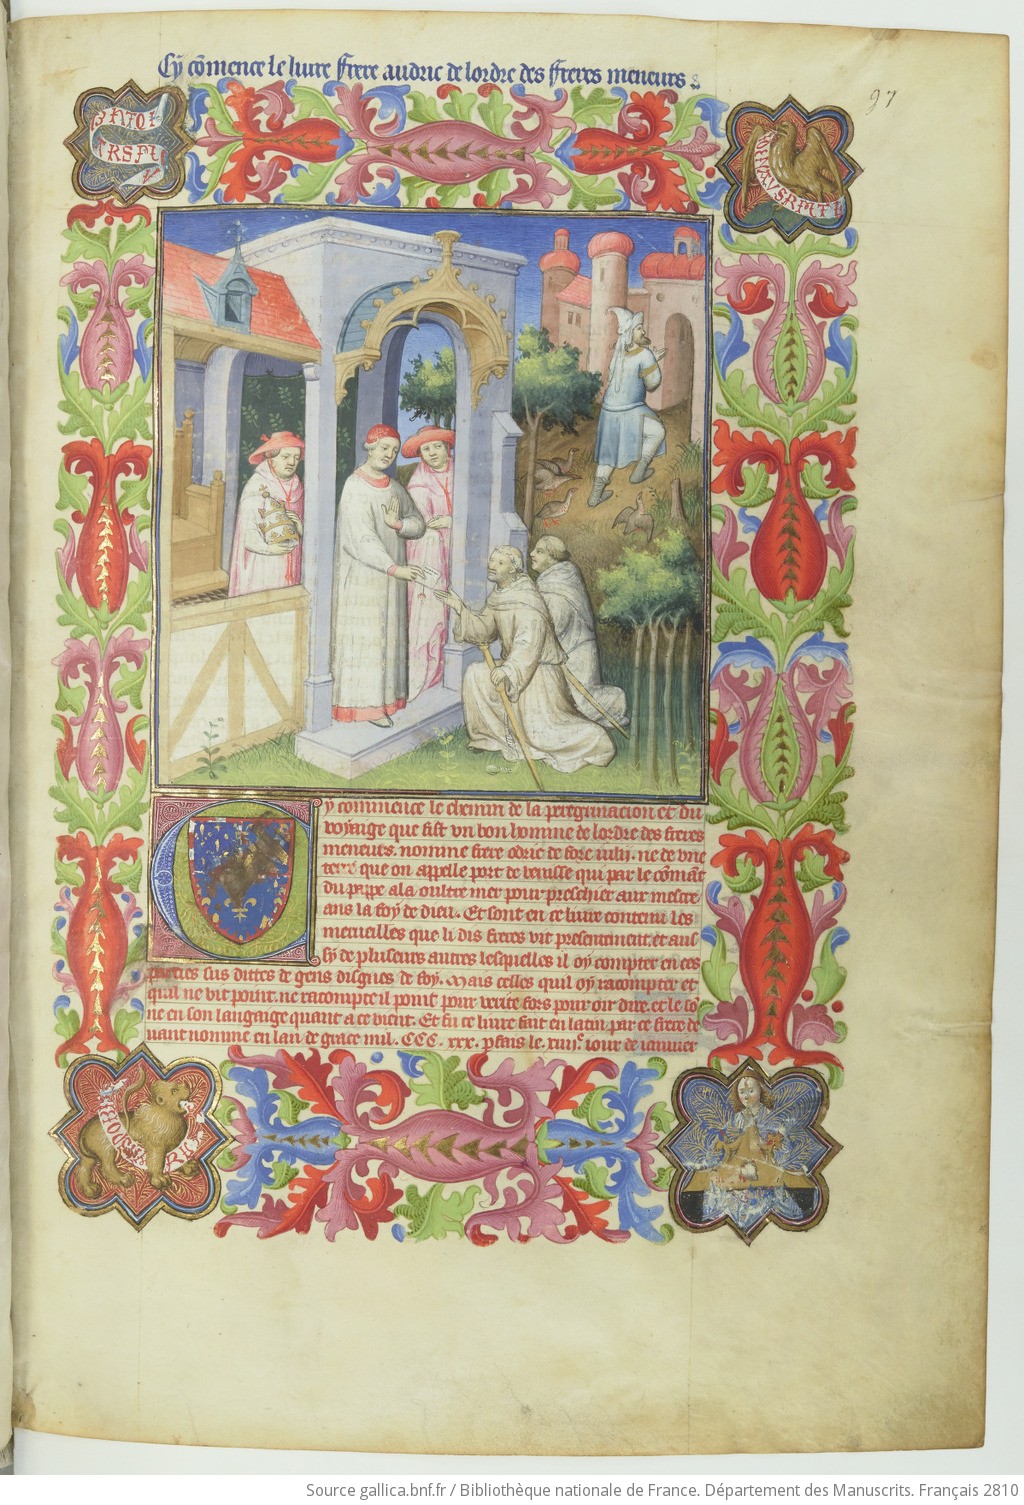 Cy cõmence le livre Frere audric de lordre des Freres meneurs
97
Cy commence le chemin de la peregrinacion et du
voyaige que fist un bon homme de lordre des freres
meneurs. nomme frere odric de fore iulii. ne de une
terre que on appelle port de venisse qui par le cõmãt
du pape ala oultre mer pour preschier aux mescre
ans la foy de dieu. Et sont en ce livre contenu les
merueilles que li dis freres vit presentement. et aus
sy de plusieurs autres lesquelles il oy compter en ces
parties sus dittes de gens dignes de foy. Mais celles quil oy racompter et
quil ne vit point. ne racompte il point pour verite fors pour oir dire. et le
ne en son langaige quant a ce vient. Et fu ce livre fait en latin par ce frere de
vant nomme en lan de grace mil. CCC. xxx. p̱fais le. xiiij.e iour de ianvier
Source gallica.bnf.fr / Bibliothèque nationale de France. Département des Manuscrits. Français 2810